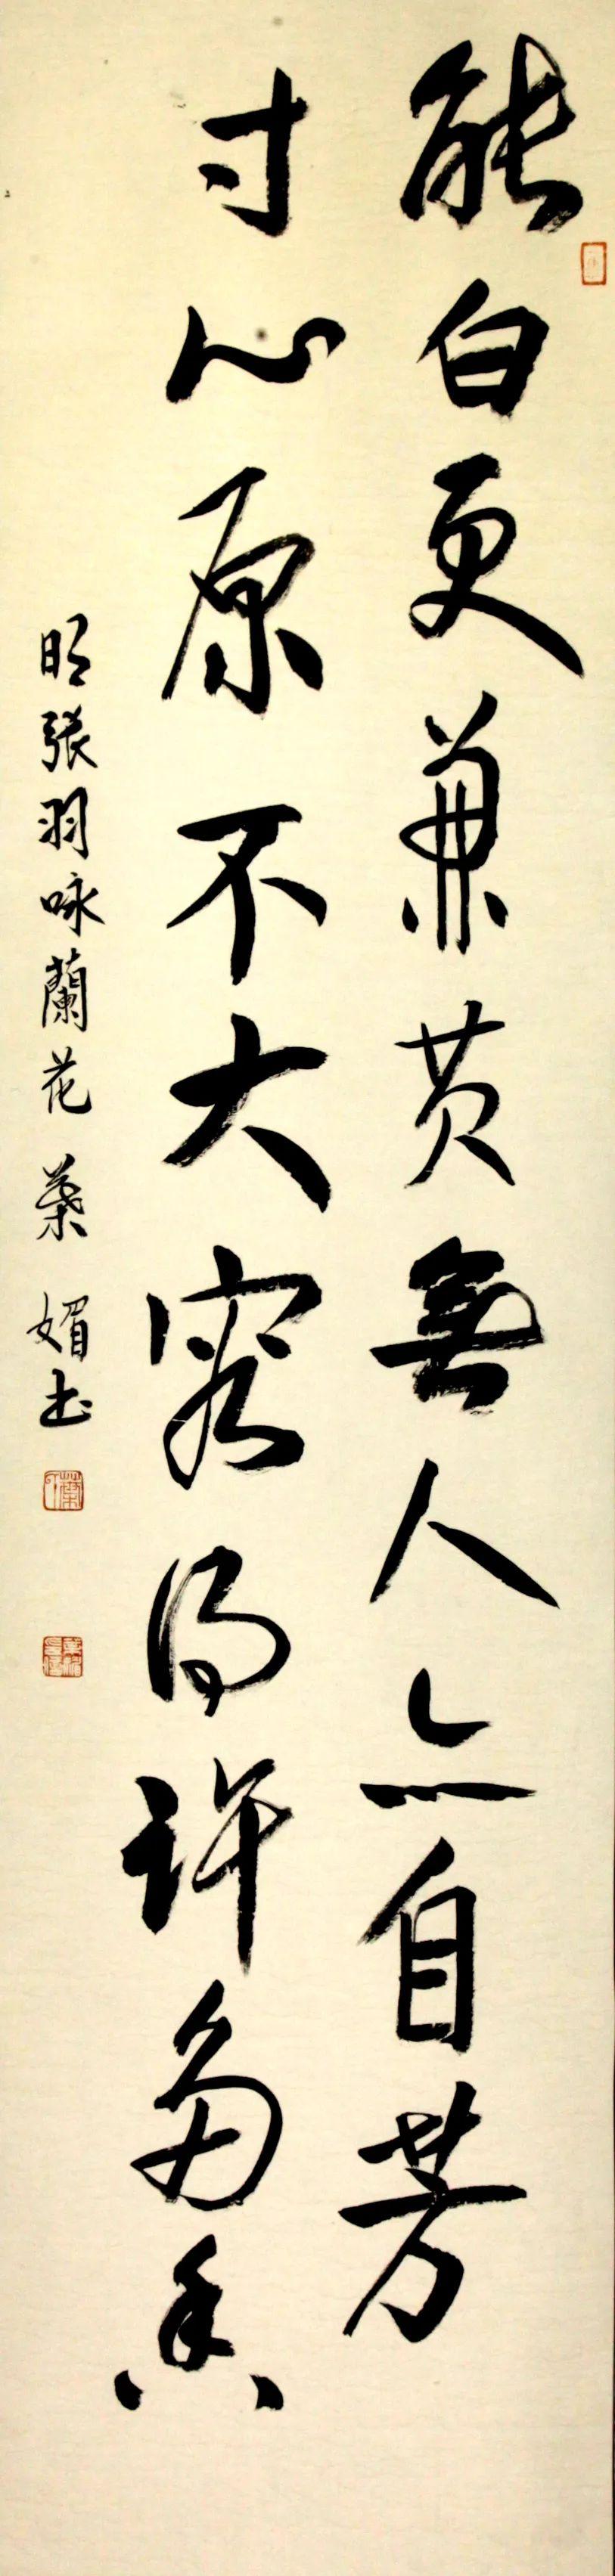 能白更兼黄無人亦自芳
寸心原不大容得許多香
明張羽咏蘭花 葉媚書